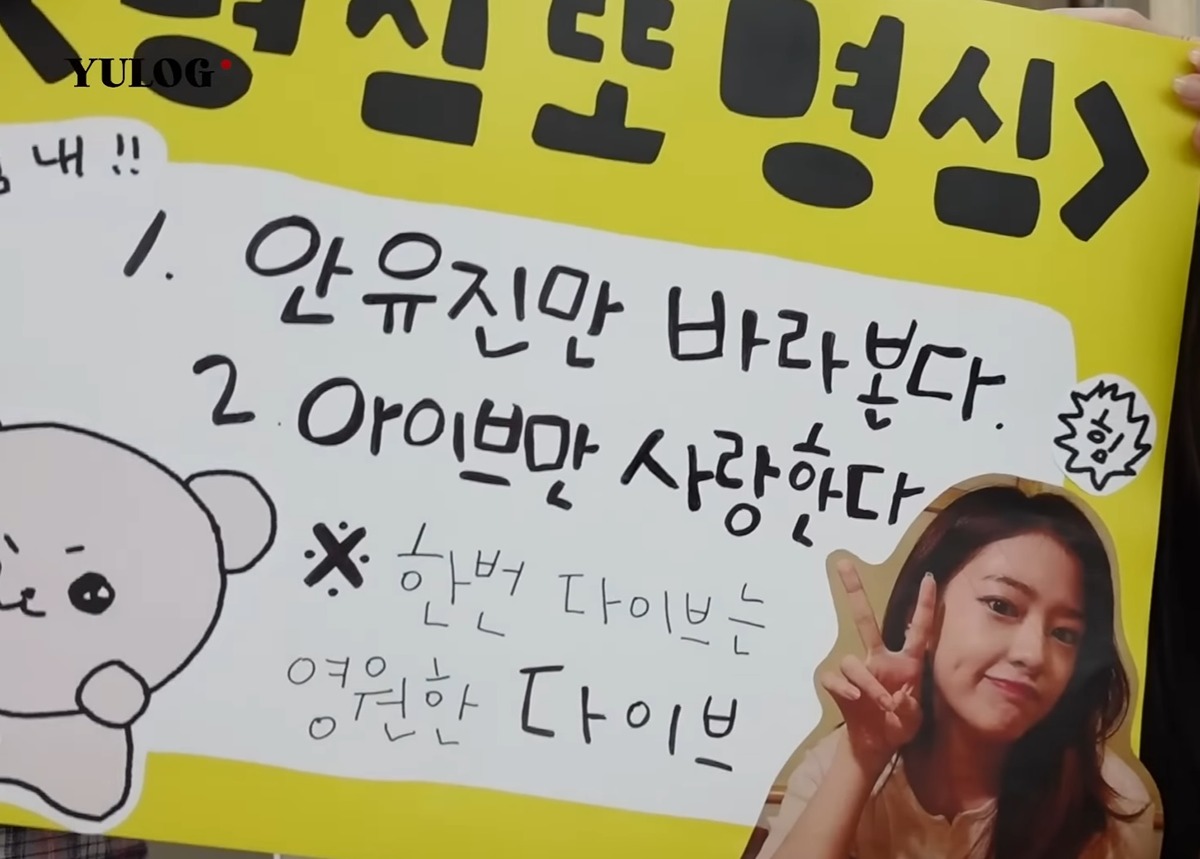 <명심 또 명심>
YULOG
내!!
1. 안유진만 바라본다.
2. 아이브만 사랑한다
힘
※ 한번 다이브는
영원한 다이브